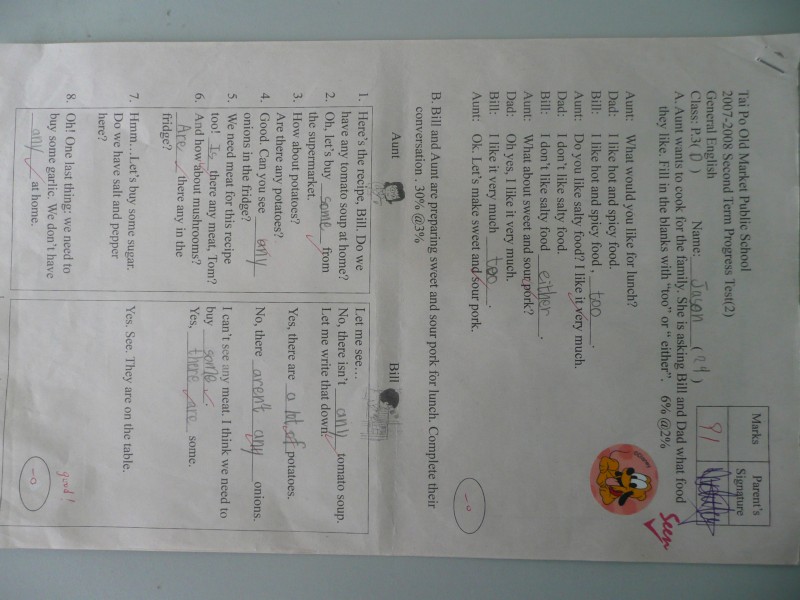 Tai Po Old Market Public School
2007-2008 Second Term Progress Test(2)
General English
Class: P.3( D )   Name: Jason (24)
Marks
Parent's Signature
91
Seen
A. Aunt wants to cook for the family. She is asking Bill and Dad what food
they like. Fill in the blanks with "too" or " either".   6% @2%
Aunt: What would you like for lunch?
Dad: I like hot and spicy food.
Bill: I like hot and spicy food , too .
Aunt: Do you like salty food? I like it very much.
Dad: I don't like salty food.
Bill: I don't like salty food either .
Aunt: What about sweet and sour pork?
Dad: Oh yes, I like it very much.
Bill: I like it very much too .
Aunt: Ok. Let's make sweet and sour pork.
-0
B. Bill and Aunt are preparing sweet and sour pork for lunch. Complete their
conversation . 30% @3%
Aunt
Bill
1. Here's the recipe, Bill. Do we
have any tomato soup at home?
Let me see…
No, there isn't any tomato soup.
2. Oh, let's buy some from
the supermarket.
Let me write that down.
3. How about potatoes?
Are there any potatoes?
Yes, there are a lot of potatoes.
4. Good. Can you see any
onions in the fridge?
No, there aren't any onions.
5. We need meat for this recipe
too! Is there any meat, Tom?
I can't see any meat. I think we need to
buy some .
6. And how about mushrooms?
Are there any in the
fridge?
Yes, there are some.
7. Hmm…Let's buy some sugar.
Do we have salt and pepper
here?
Yes. See. They are on the table.
8. Oh! One last thing: we need to
buy some garlic. We don't have
any at home.
good!
-0